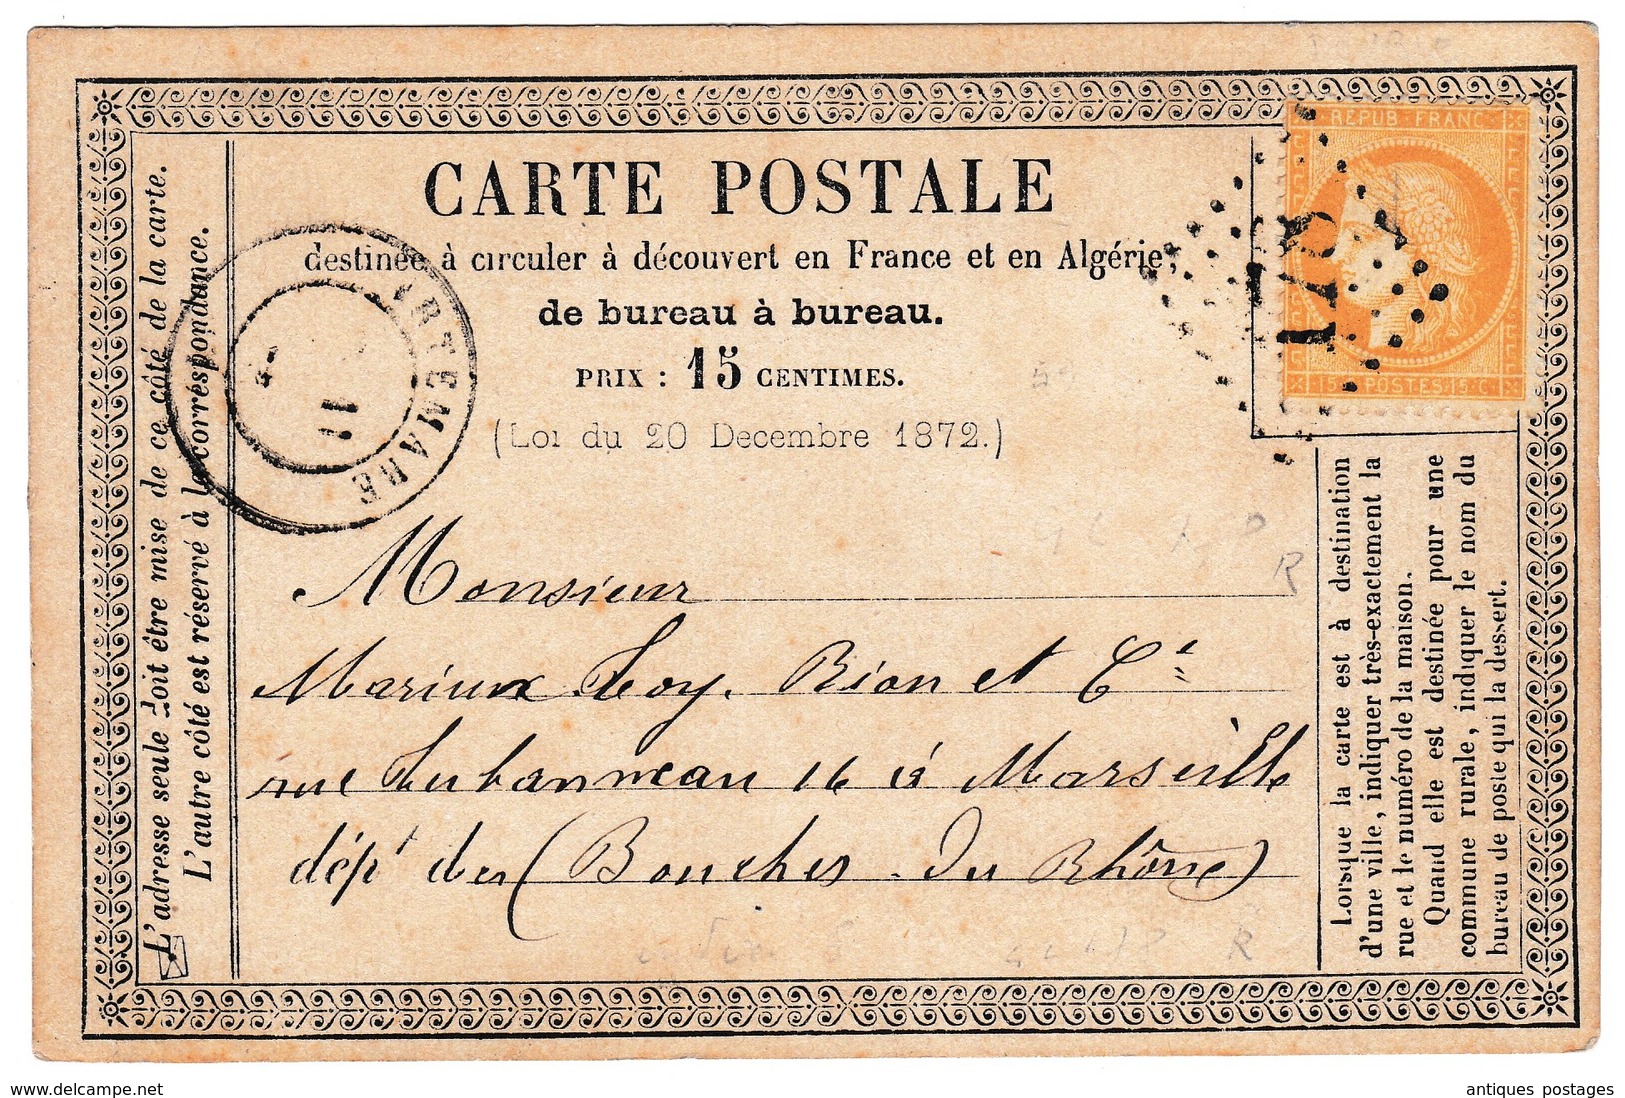 CARTE POSTALE
destinée à circuler à découvert en France et en Algérie,
de bureau à bureau.
PRIX : 15 CENTIMES.
(Loi du 20 Decembre 1872.)
L'adresse seule doit être mise de ce côté de la carte.
L'autre côté est réservé à la correspondance.
ARTEMARE
11
REPUB. FRANC.
15 C. POSTES 15 C.
178
Monsieur
Marius Roy. Rion et Cie
rue Lubanneau 16 à Marseille
dépt des (Bouches du Rhône)
Lorsque la carte est à destination
d'une ville, indiquer très-exactement la
rue et le numéro de la maison.
Quand elle est destinée pour une
commune rurale, indiquer le nom du
bureau de poste qui la dessert.
R
R
www.delcampe.net
antiques postages